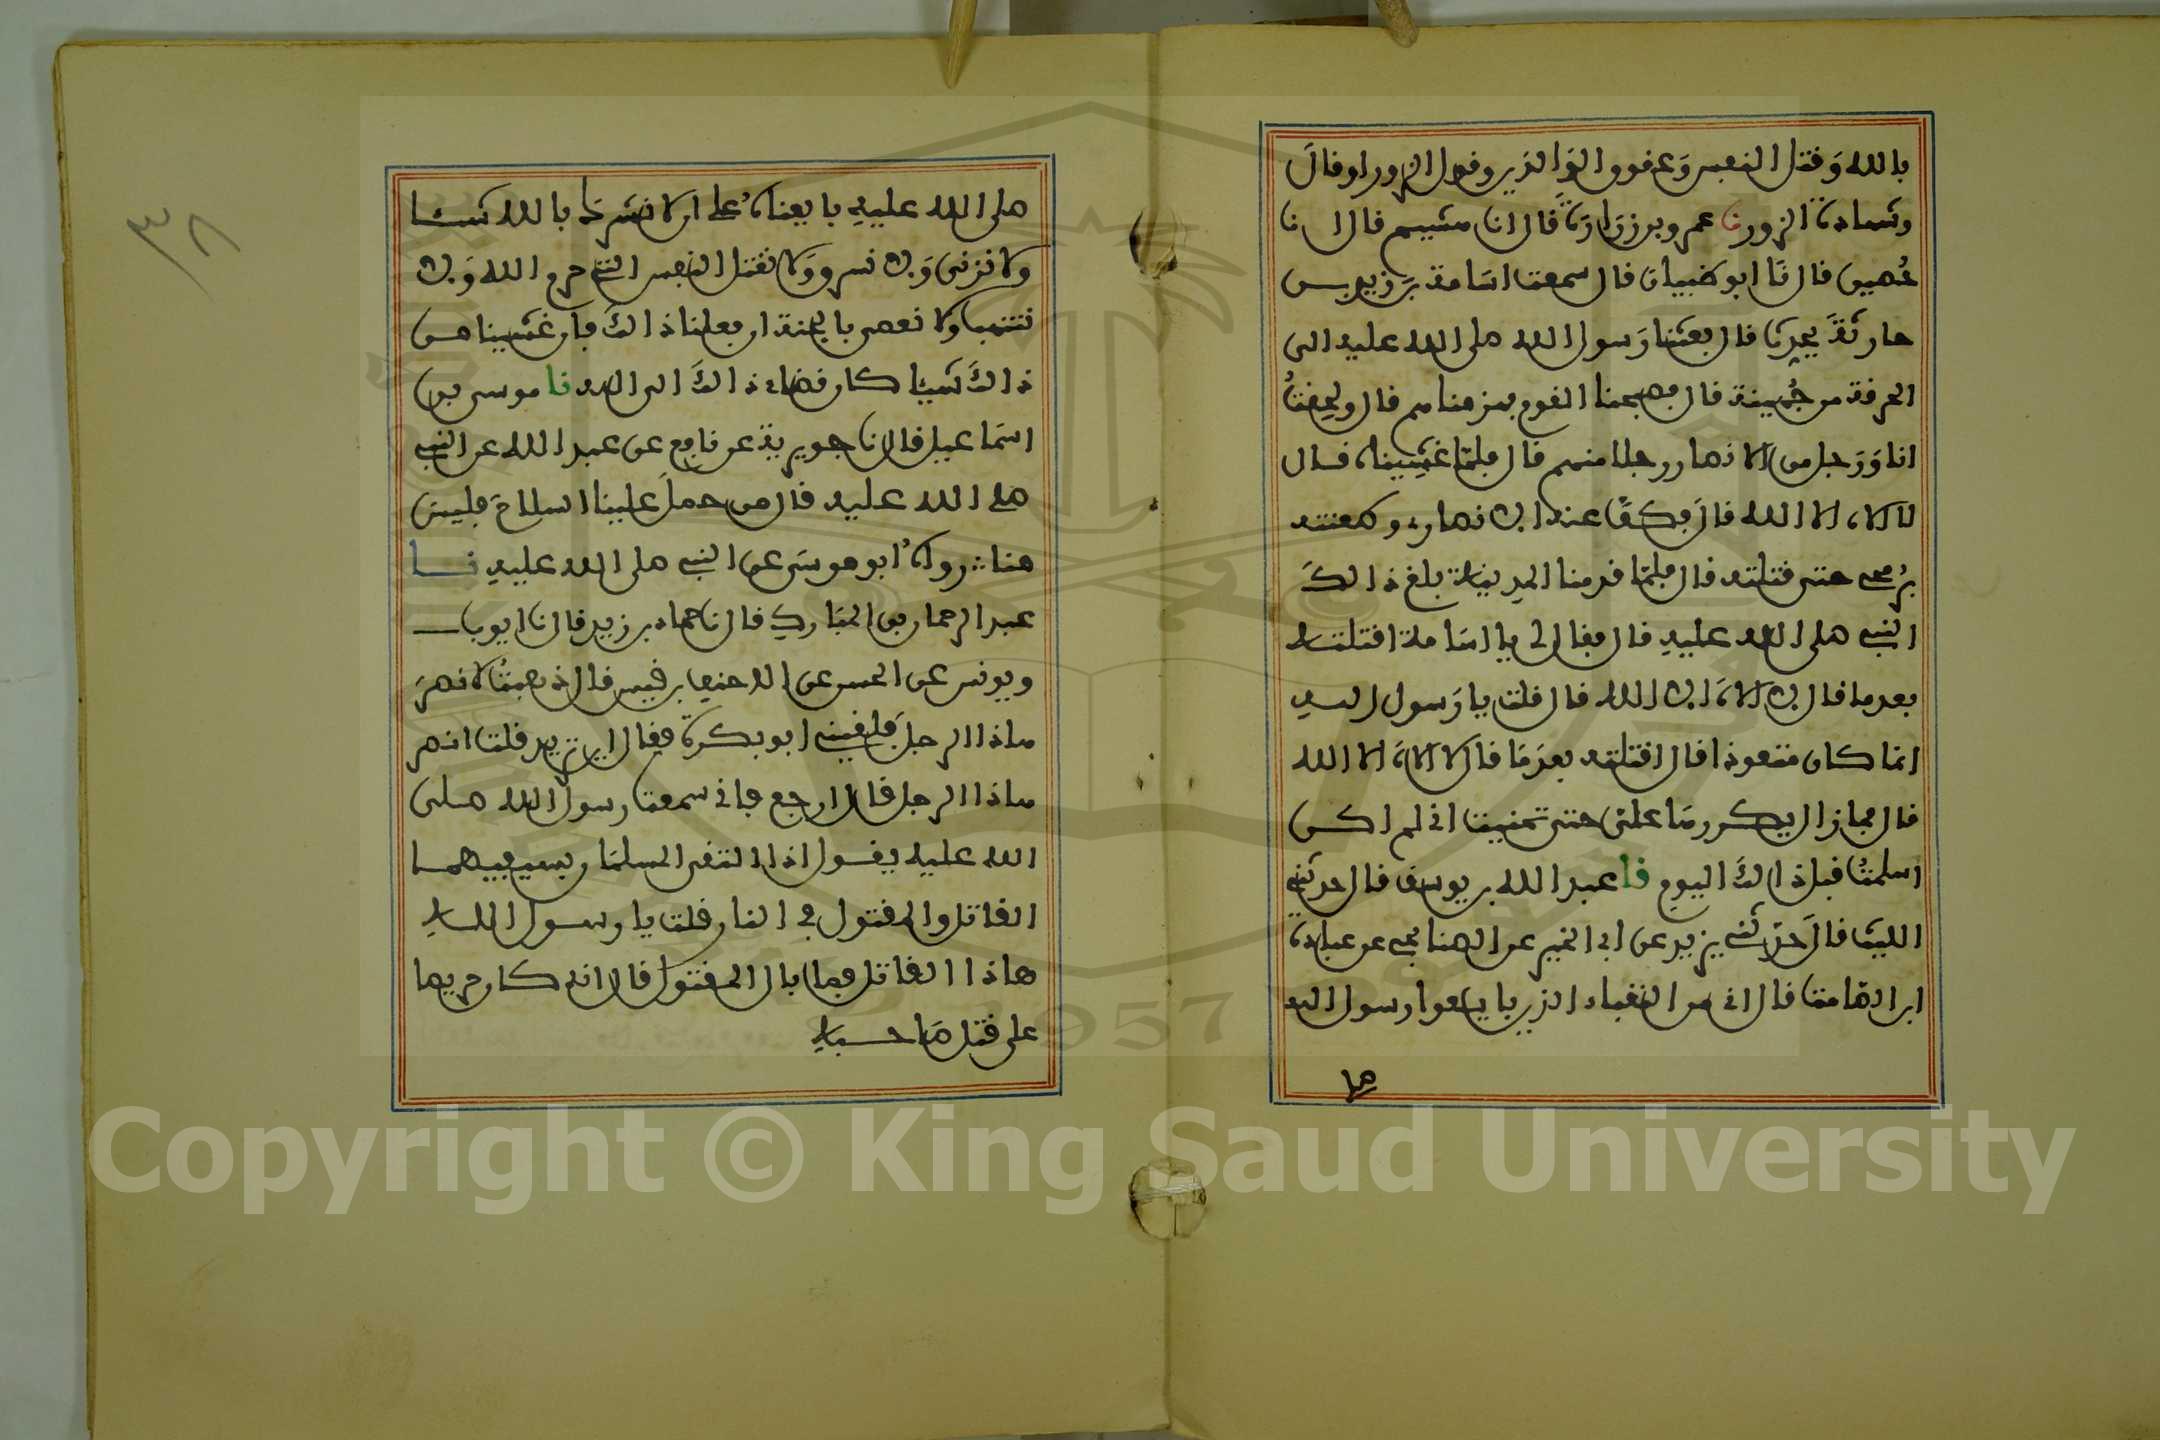 بالله وقتل النفس وعقوق الوالدين وقول الزور او قال
وشهادة الزور نا عمرو بن زرارة قال انا هشيم قال انا
حصين قال نا ابو ظبيان قال سمعت اسامة بن زيد بن
حارثة يحدث قال بعثنا رسول الله صلى الله عليه الى
الحرقة من جهينة قال فصبحنا القوم فهزمناهم قال ولحقت
انا ورجل من الانصار رجلا منهم قال فلما غشيناه قال
لا الاه الا الله قال فكف عنه الانصاري وطعنته
برمحي حتى قتلته قال فلما قدمنا المدينة بلغ ذالك
النبي صلى الله عليه قال فقال لي يا اسامة اقتلته
بعد ما قال لا الاه الا الله قال قلت يا رسول الله
انما كان متعوذا قال اقتلته بعد ما قال لا الاه الا الله
قال فما زال يكررها علي حتى تمنيت اني لم اكن
اسلمت قبل ذالك اليوم نا عبد الله بن يوسف قال حدثني
الليث قال حدثني يزيد عن ابي الخير عن الصنابحي عن عبادة
ابن الصامت قال اني من النقباء الذين بايعوا رسول الله
صلى
صلى الله عليه بايعناه على ان لا نشرك بالله شيئا
ولا نزني ولا نسرق ولا نقتل النفس التي حرم الله ولا
ننتهب ولا نعصي بالجنة ان فعلنا ذالك فان غشينا من
ذالك شيئا كان قضاء ذالك الى الله نا موسى بن
اسماعيل قال نا جويرية عن نافع عن عبد الله عن النبي
صلى الله عليه قال من حمل علينا السلاح فليس
منا رواه ابو موسى عن النبي صلى الله عليه نا
عبد الرحمان بن المبارك قال نا حماد بن زيد قال نا ايوب
ويونس عن الحسن عن الاحنف بن قيس قال ذهبت لانصر
هاذا الرجل فلقيني ابو بكرة فقال اين تريد قلت انصر
هاذا الرجل قال ارجع فاني سمعت رسول الله صلى
الله عليه يقول اذا التقى المسلمان بسيفيهما
القاتل والمقتول في النار قلت يا رسول الله
هاذا القاتل فما بال المقتول قال انه كان حريصا
على قتل صاحبه
٣٨
Copyright © King Saud University
1957